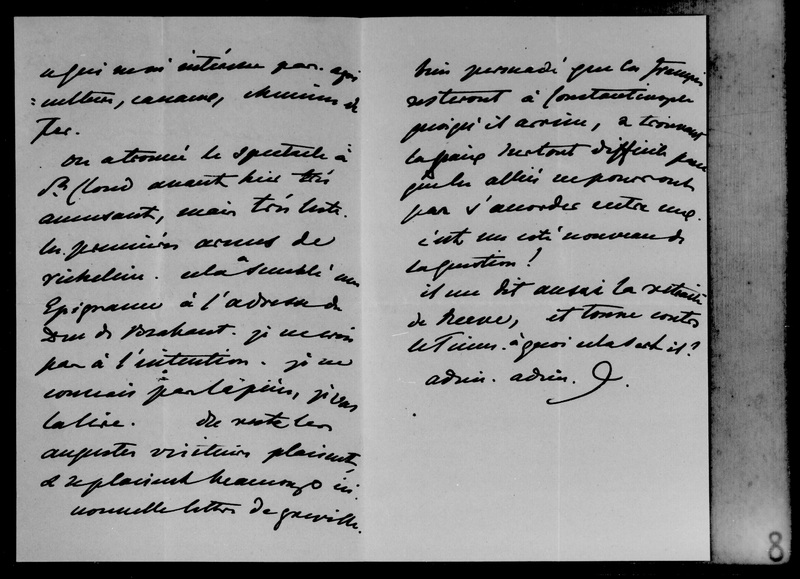 qui m'intéresse par. agri
=culture, canaux, chemins de
fer.
on a trouvé le spectacle à
St Cloud avant hier très
amusant, mais très leste.
les premières armes de
richelieu. cela a semblé une
Epigramme à l'adresse du
Duc de Brabant. je ne crois
pas à l'intention. je ne
connais pas la pièce, je vais
la lire. du reste les
augustes visiteurs plaisent
& se plaisent beaucoup ici.
nouvelle lettre de greville.
bien persuadé que les français
resteront à Constantinople
quoiqu'il arrive, & trouvant
la paix surtout difficile parce
que les alliés ne pourront
pas s'accorder entre eux.
c'est un coté nouveau de
la question !
il me dit aussi la retraite
de Reeve, et tonne contre
le Times. à quoi cela sert il ?
adieu. adieu.
8